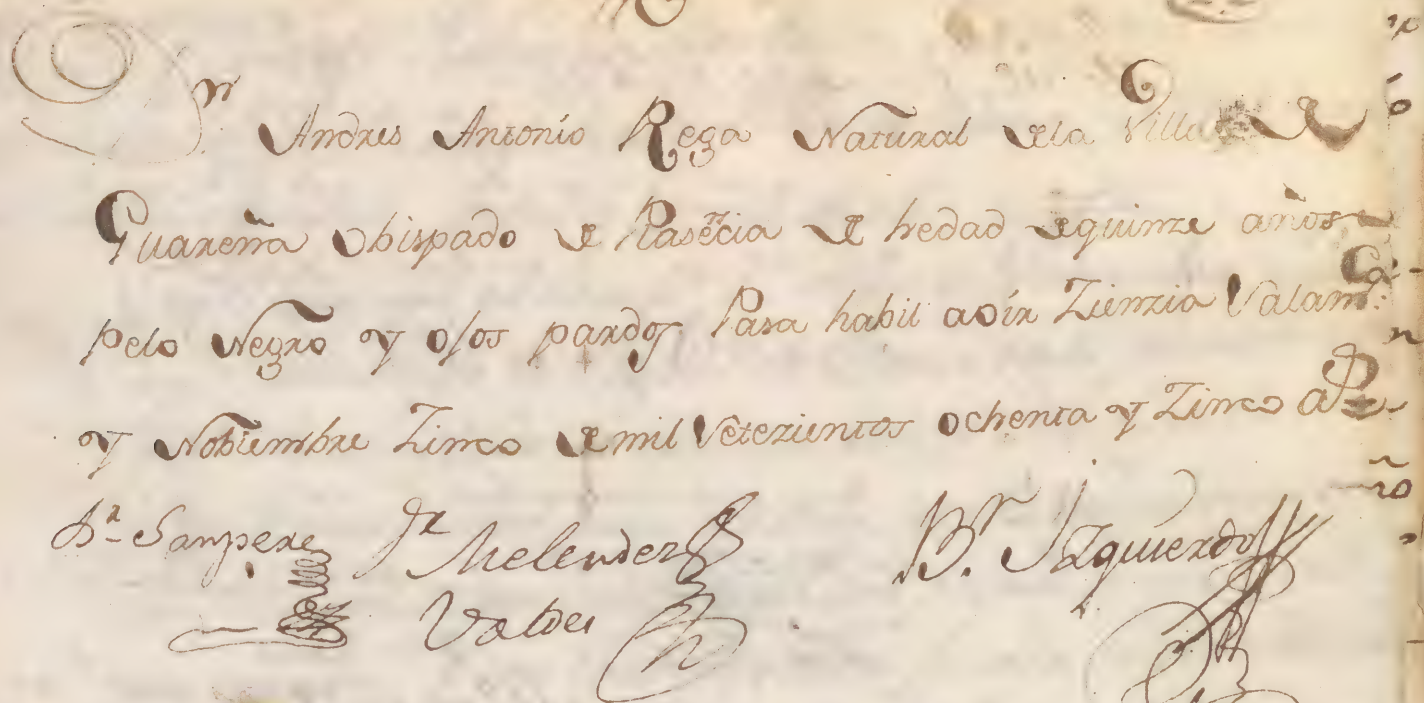 Dn. Andres Antonio Rega Natural dela Villa de
Guareña Obispado de Plasezia de hedad de quinze años
pelo Negro y ojos pardos Pasa habil a oir Zienzia Salam.ca
y Nobiembre Zinco de mil Setezientos ochenta y Zinco as
Dr. Sanpere Dr. Melendez Br. Izquierdo
Valdes